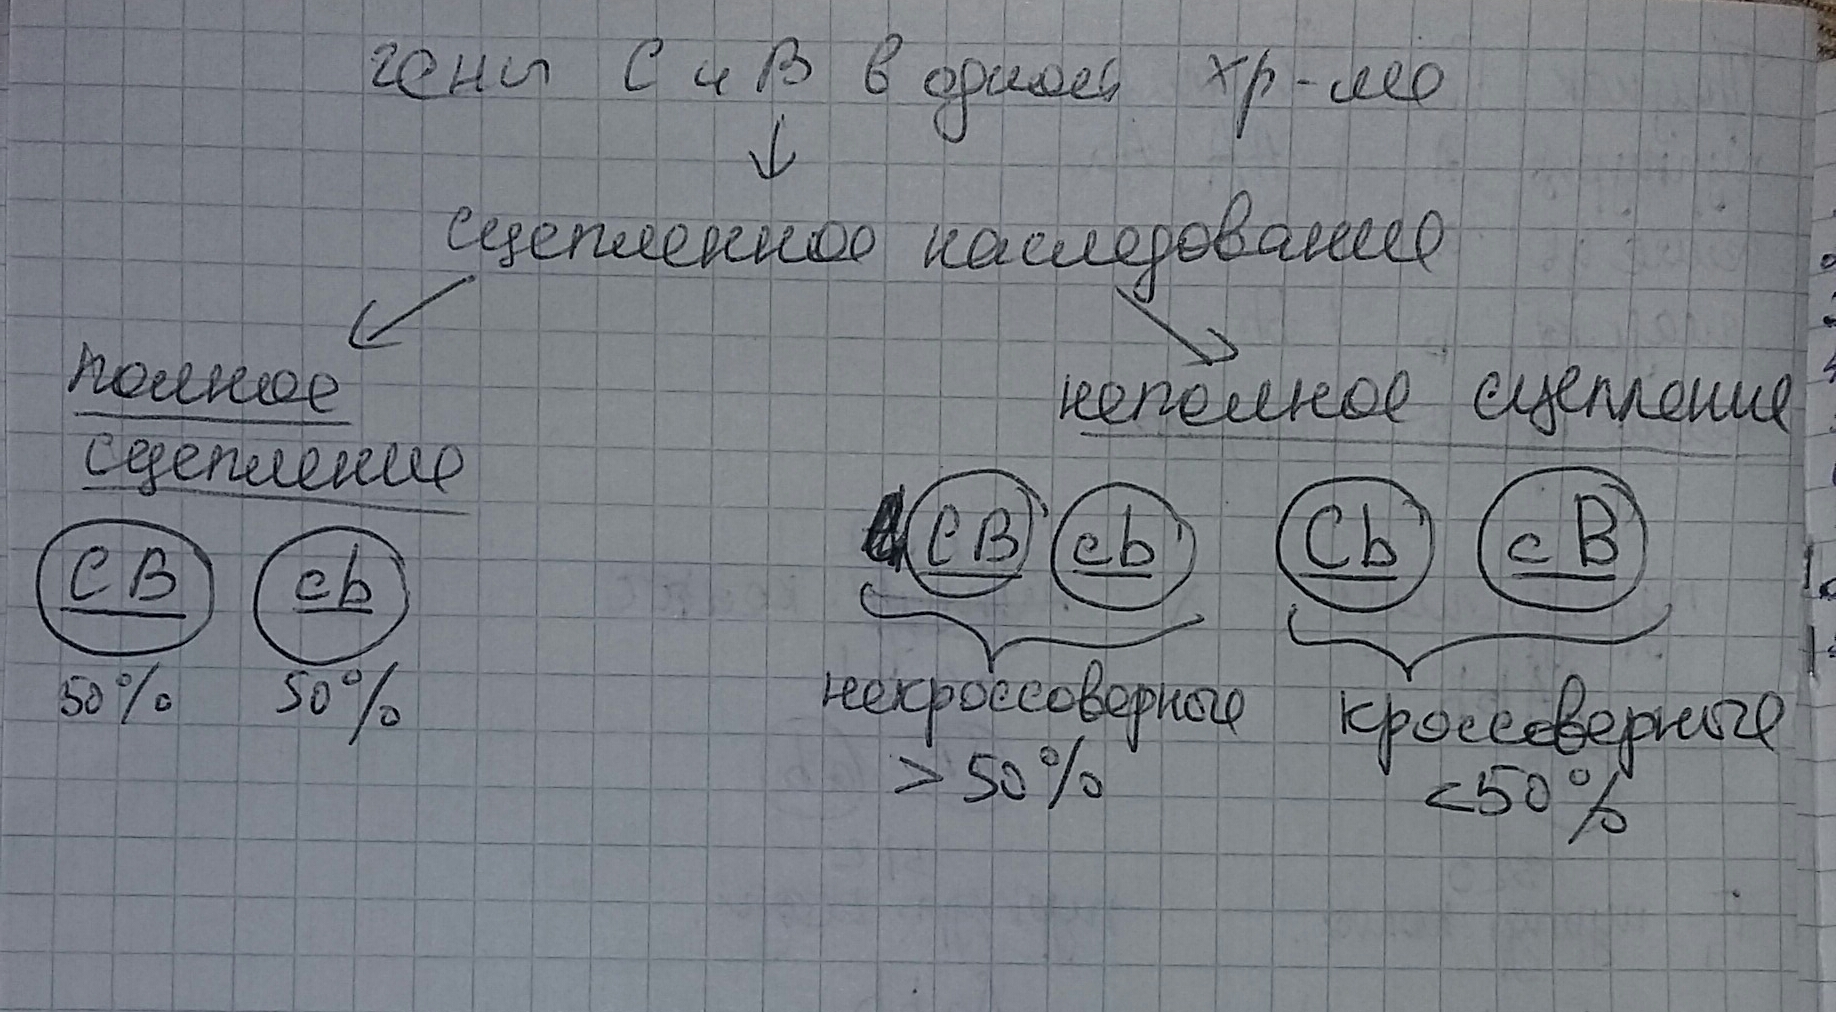 гены С и В в одной хр-ме
↓
сцепленное наследование
полное
сцепление
неполное сцепление
СВ сb
50% 50%
СВ сb Сb сВ
некроссоверные кроссоверные
>50% <50%